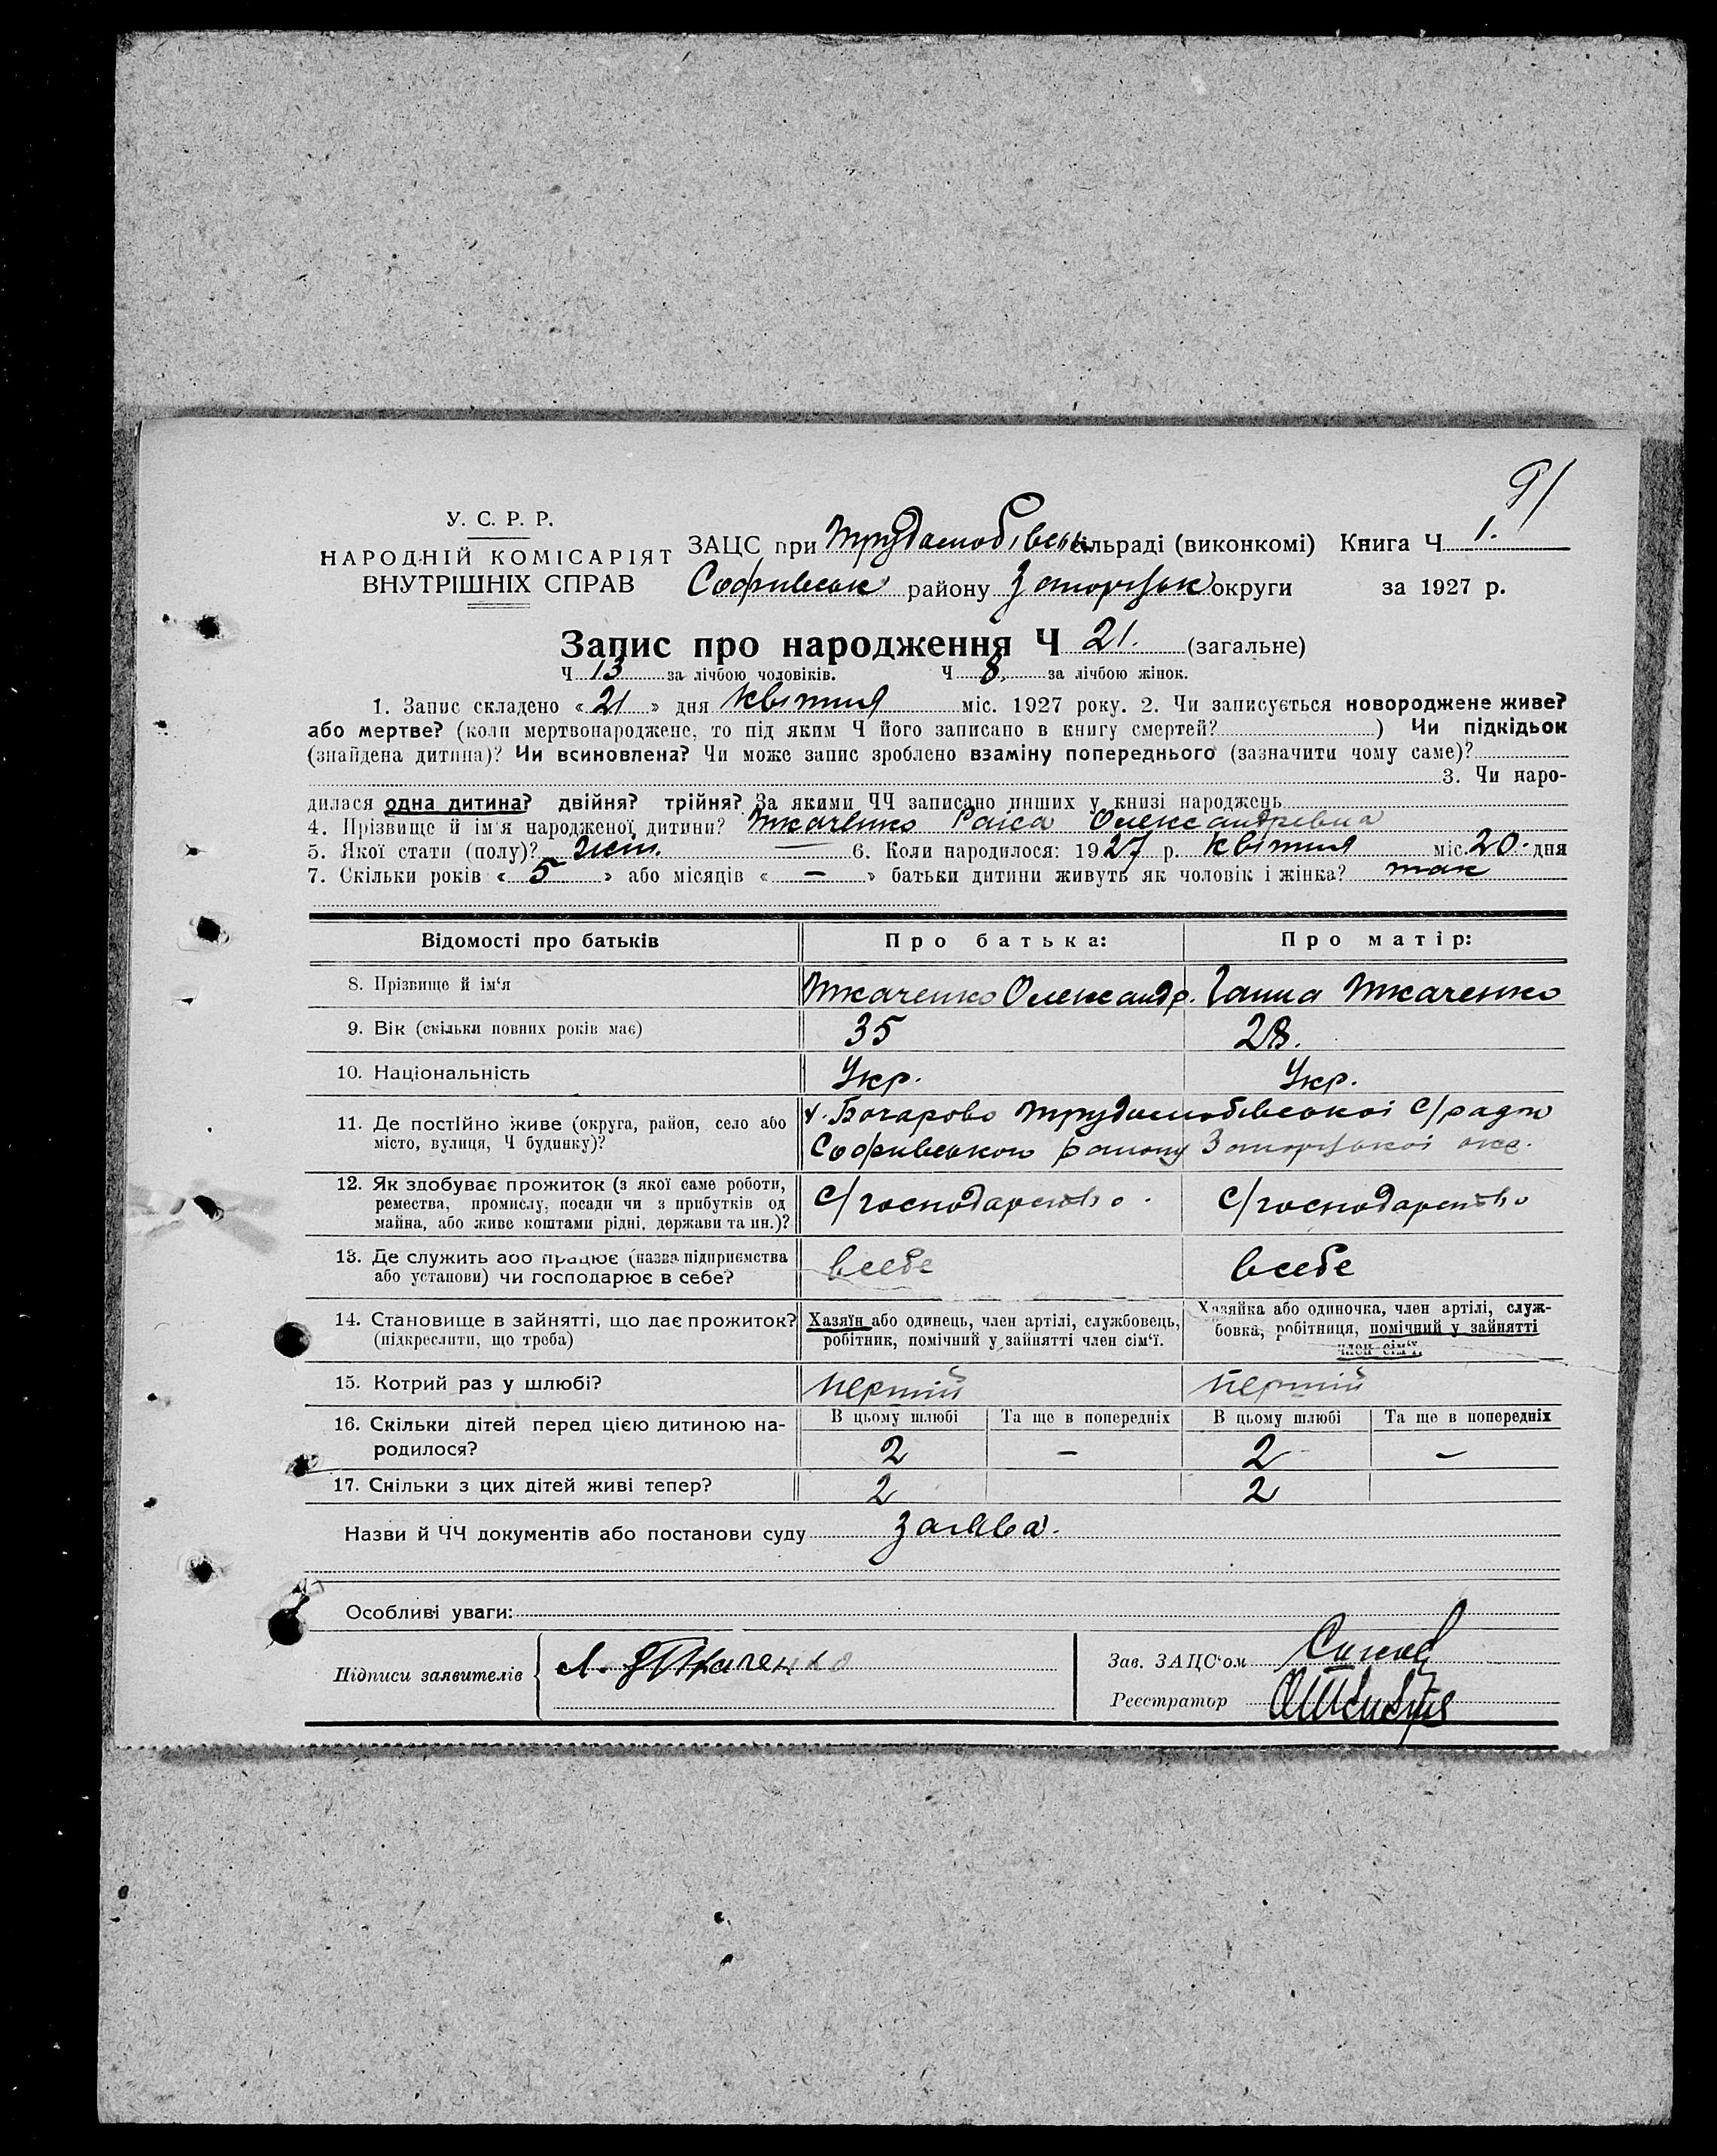 91
У. С. Р. Р.
НАРОДНІЙ КОМІСАРІЯТ
ВНУТРІШНІХ СПРАВ
ЗАЦС при Трудолюбівськ сільраді (виконкомі) Книга Ч 1.
Софиївськ району Запоріжськ округи за 1927 р.
Запис про народження Ч 21. (загальне)
Ч 13 за лічбою чоловіків. Ч 8. за лічбою жінок.
1. Запис складено « 21 » дня квітня міс. 1927 року. 2. Чи записується новороджене живе?
або мертве? (коли мертвонароджене, то під яким Ч його записано в книгу смертей? ) Чи підкідьок
(знайдена дитина)? Чи всиновлена? Чи може запис зроблено взаміну попереднього (зазначити чому саме)?
3. Чи наро-
дилася одна дитина? двійня? трійня? За якими ЧЧ записано инших у книзі народжень
4. Прізвище й ім'я народженої дитини? Ткаченко Раіса Олександревна
5. Якої стати (полу)? жін. — 6. Коли народилося: 1927 р. квітня міс. 20. дня
7. Скільки років « 5 » або місяців « — » батьки дитини живуть як чоловік і жінка? так
Відомості про батьків
Про батька:
Про матір:
8. Прізвище й ім'я
Ткаченко Олександр.
Ганна Ткаченко
9. Вік (скільки повних років має)
35
28.
10. Національність
Укр.
Укр.
11. Де постійно живе (округа, район, село або
місто, вулиця, Ч будинку)?
х. Бочарово Трудолюбівської С/ради
Софивського району Запоріжської окр.
12. Як здобуває прожиток (з якої саме роботи,
ремества, промислу, посади чи з прибутків од
майна, або живе коштами рідні, держави та ин.)?
с/господарство.
с/господарство
13. Де служить або працює (назва підприємства
або установи) чи господарює в себе?
всебе
всебе
14. Становище в зайнятті, що дає прожиток?
(підкреслити, що треба)
Хазяїн або одинець, член артілі, службовець,
робітник, помічний у зайнятті член сім'ї.
Хазяйка або одиночка, член артілі, служ-
бовка, робітниця, помічний у зайнятті
член сім'ї.
15. Котрий раз у шлюбі?
перший
перший
16. Скільки дітей перед цією дитиною на-
родилося?
В цьому шлюбі
Та ще в попередніх
В цьому шлюбі
Та ще в попередніх
2 — 2 —
17. Скільки з цих дітей живі тепер?
2 2
Назви й ЧЧ документів або постанови суду заява.
Особливі уваги:
Підписи заявителів
А. Ткаченко
Зав. ЗАЦС'ом
Реєстратор